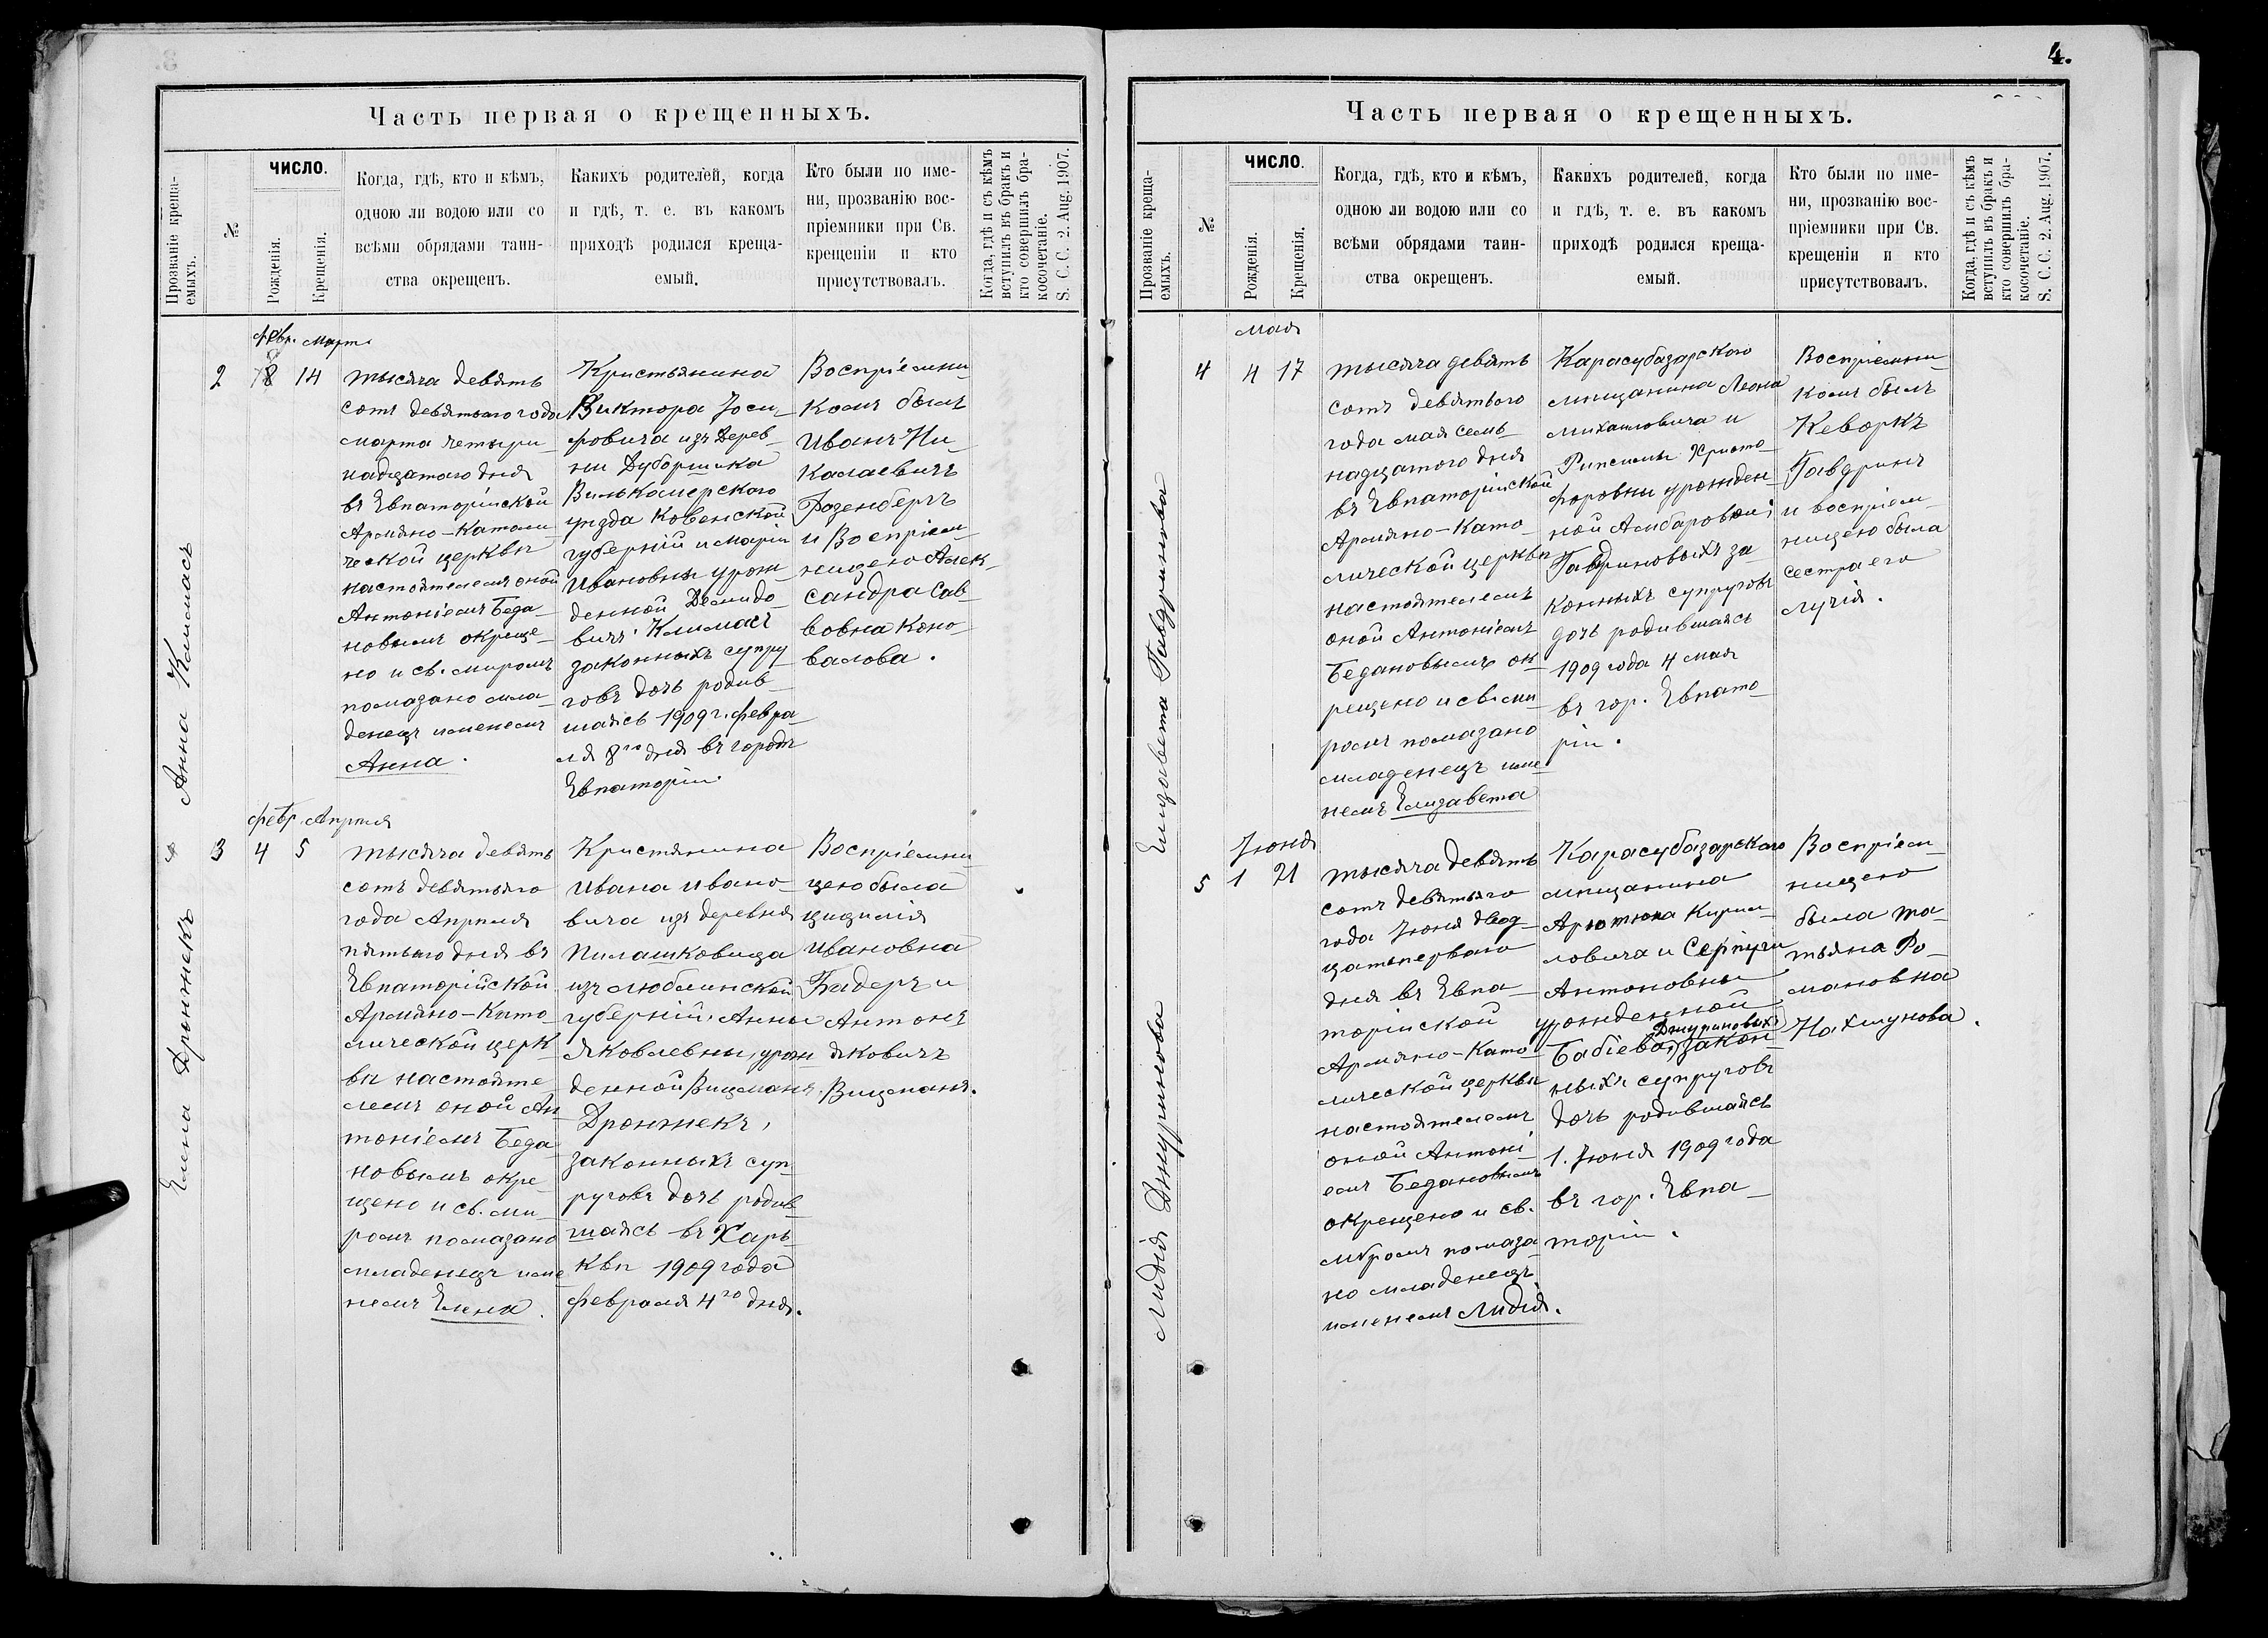 Часть первая о крещенныхъ.
Прозваніе креща-
емыхъ.
№
ЧИСЛО.
Рожденія.
Крещенія.
Когда, гдѣ, кто и кѣмъ,
одною ли водою или со
всѣми обрядами таин-
ства окрещенъ.
Какихъ родителей, когда
и гдѣ, т. е. въ какомъ
приходѣ родился креща-
емый.
Кто были по име-
ни, прозванію вос-
пріемники при Св.
крещеніи и кто
присутствовалъ.
Когда, гдѣ и съ кѣмъ
вступилъ въ бракъ и
кто совершилъ бра-
косочетаніе.
S. C. C. 2. Aug. 1907.
Анна Климасъ
2
февр. Мартъ
8 14
тысяча девять
сотъ девятаго года
марта четыр
надцатаго дня
въ Евпаторійской
Армяно-Католи
ческой церквѣ
настоятелемъ оной
Антоніемъ Беда-
новымъ окреще-
но и св. миромъ
помазано мла-
денецъ именемъ
Анна.
Кристьянина
Виктора Іоси-
фовича изъ Дерев-
ни
Вилькомерскаго
уѣзда Ковенской
губерній и Маріи
Ивановны урож
денной Демидо-
вичъ Климасъ
законныхъ супру
говъ дочь родив-
шаясь 1909 г. февра
ля 8го дня въ городѣ
Евпаторіи.
Воспріемни-
комъ былъ
Иванъ Ни-
колаевичъ
Розенбергъ
и Воспріем-
ницею Алек-
сандра Сав-
вовна Коно-
валова.
Елена Дронжекъ
3
февр. Апрѣля
4 5
тысяча девять
сотъ девятаго
года Апрѣля
пятаго дня въ
Евпаторійской
Армяно-Като-
лической церк
вѣ настояте
лемъ оной Ан
тоніемъ Беда
новымъ окре-
щено и св. ми-
ромъ помазано
младенецъ име
немъ Елена.
Кристянина
Ивана Ивано-
вича изъ деревня
Пилашковица
изъ Люблинской
губерній, Анны
Яковлевны, урож
денной Вицманъ
Дронжекъ,
законныхъ суп-
руговъ дочь родив
шаясь въ Харь-
квѣ 1909 года
февраля 4го дня.
Воспріемни
цею была
Цицилія
Ивановна
Бадеръ и
Антонъ
Яковичъ
Вицманъ.
4.
Часть первая о крещенныхъ.
Прозваніе креща-
емыхъ.
№
ЧИСЛО.
Рожденія.
Крещенія.
Когда, гдѣ, кто и кѣмъ,
одною ли водою или со
всѣми обрядами таин-
ства окрещенъ.
Какихъ родителей, когда
и гдѣ, т. е. въ какомъ
приходѣ родился креща-
емый.
Кто были по име-
ни, прозванію вос-
пріемники при Св.
крещеніи и кто
присутствовалъ.
Когда, гдѣ и съ кѣмъ
вступилъ въ бракъ и
кто совершилъ бра-
косочетаніе.
S. C. C. 2. Aug. 1907.
Елизавета Гавдринова
4
мая
4 17
тысяча девять
сотъ девятаго
года мая семь-
надцатаго дня
въ Евпаторійской
Армяно-Като-
лической церквѣ
настоятелемъ
оной Антоніемъ
Бедановымъ ок-
рещено и св. ми
ромъ помазано
младенецъ име
немъ Елизавета
Карасубазарскаго
мѣщанина Леона
Михаиловича и
Рипсимы Христо
форовны урожден
ной Амбаровой;
Гавдриновыхъ за
конныхъ супруговъ
дочь родившаясь
1909 года 4 мая
въ гор. Евпато-
ріи.
Воспріемни-
комъ былъ
Кеворкъ
Гавдринъ
и воспріем-
ницею была
сестра его
Лучія.
Лидія Джуринова
5
Іюня
1 21
тысяча девять
сотъ девятаго
года Іюня двад-
цатьперваго
дня въ Евпа-
торійской
Армяно-Като-
лической церквѣ
настоятелемъ
оной Антоні-
емъ Бедановымъ
окрещено и св.
мѵромъ помаза
но младенецъ
именемъ Лидія.
Карасубазарскаго
мѣщанина
Арютюна Кирил-
ловича и
Антоновны
урожденной
Джуриновыхъ
Бабіевой закон
ныхъ супруговъ
дочь родившаясь
1. Іюня 1909 года
въ гор. Евпа-
торіи.
Воспріем-
ницею
была Та-
тьяна Ро-
мановна
Нахшунова.